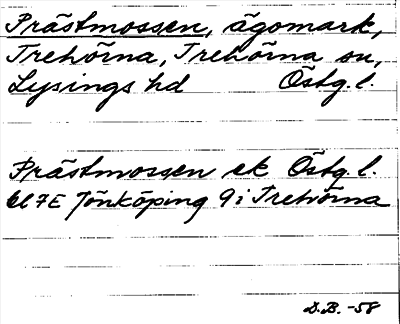 Prästmossen, ägomark,
Trehörna, Trehörna sn,
Lysings hd Östg. l.
Prästmossen ek Östg. l.
bl 7E Jönköping 9i Trehörna
D.B. -58